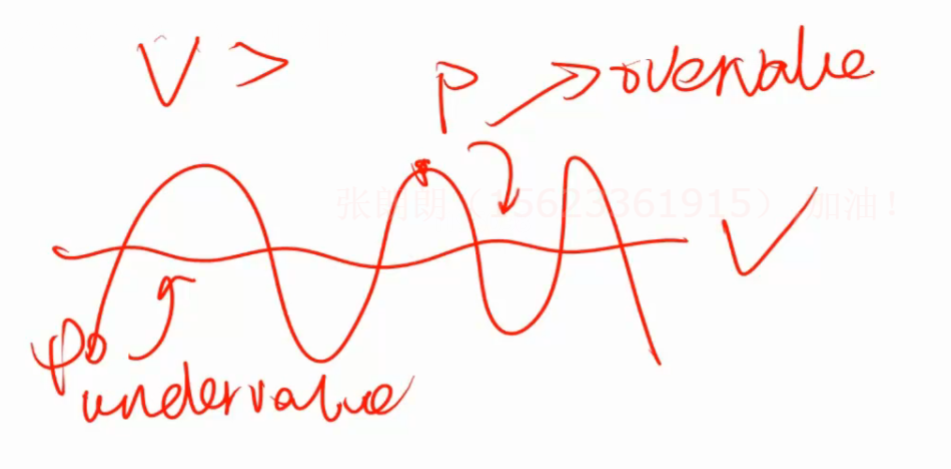 V >
P → overvalue
张的朗（15623361915） 加油！
V
P0
undervalue